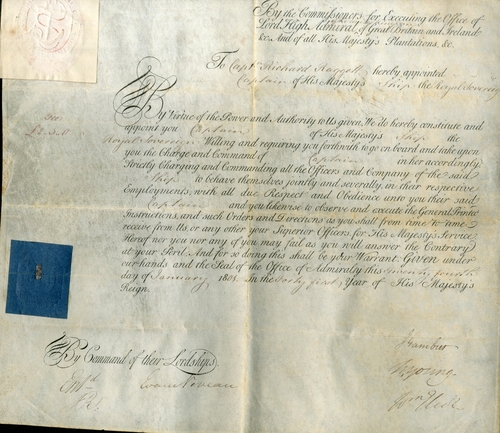 By the Commissioners for Executing the Office of
Lord High Admiral of Great Britain and Ireland
&c. And of all His Majesty's Plantations, &c.
To Capt. Richard Raggett hereby appointed
Captain of His Majesty's Ship the Royal Sovereign
By Virtue of the Power and Authority to Us given, We do hereby constitute and
appoint you Captain of His Majesty's Ship the
Royal Sovereign Willing and requiring you forthwith to go on board and take upon
you the Charge and Command of Captain in her accordingly.
Strictly Charging and Commanding all the Officers and Company of the said
Ship to behave themselves jointly and severally, in their respective
Employments, with all due Respect and Obedience unto you their said
Captain and you likewise to observe and execute the General Printed
Instructions, and such Orders and Directions as you shall from time to time
receive from Us or any other your Superior Officers for His Majesty's Service.
Hereof nor you nor any of you may fail as you will answer the Contrary
at your Peril. And for so doing this shall be your Warrant. Given under
our hands and the Seal of the Office of Admiralty this twenty fourth
day of January 1801. In the Forty first Year of His Majesty's
Reign.
By Command of their Lordships.
Evan Nepean
Wm Young